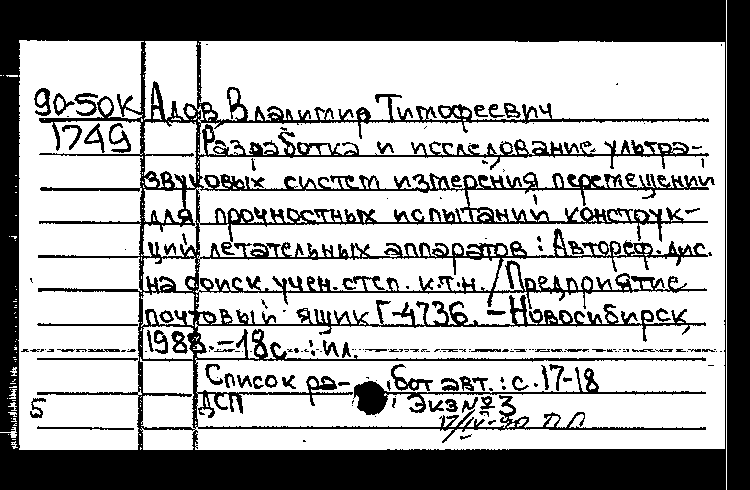 90-50К Адов Владимир Тимофеевич
1749 Разработка и исследование ультра-
звуковых систем измерения перемещений
для прочностных испытаний конструк-
ций летательных аппаратов : Автореф. дис.
на соиск. учен. степ. к.т.н. / Предприятие
почтовый ящик Г-4736. – Новосибирск,
1988. – 18с. : ил.
Список ра- бот авт. : с. 17-18
Б ДСП Экз № 3
17/IV-90